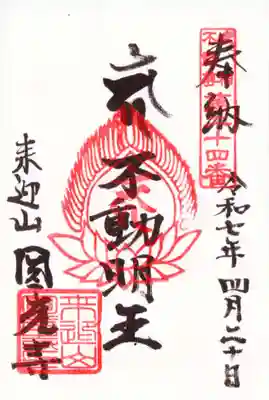 奉納
令和七年四月二十日
不動明王
来迎山
圓光寺